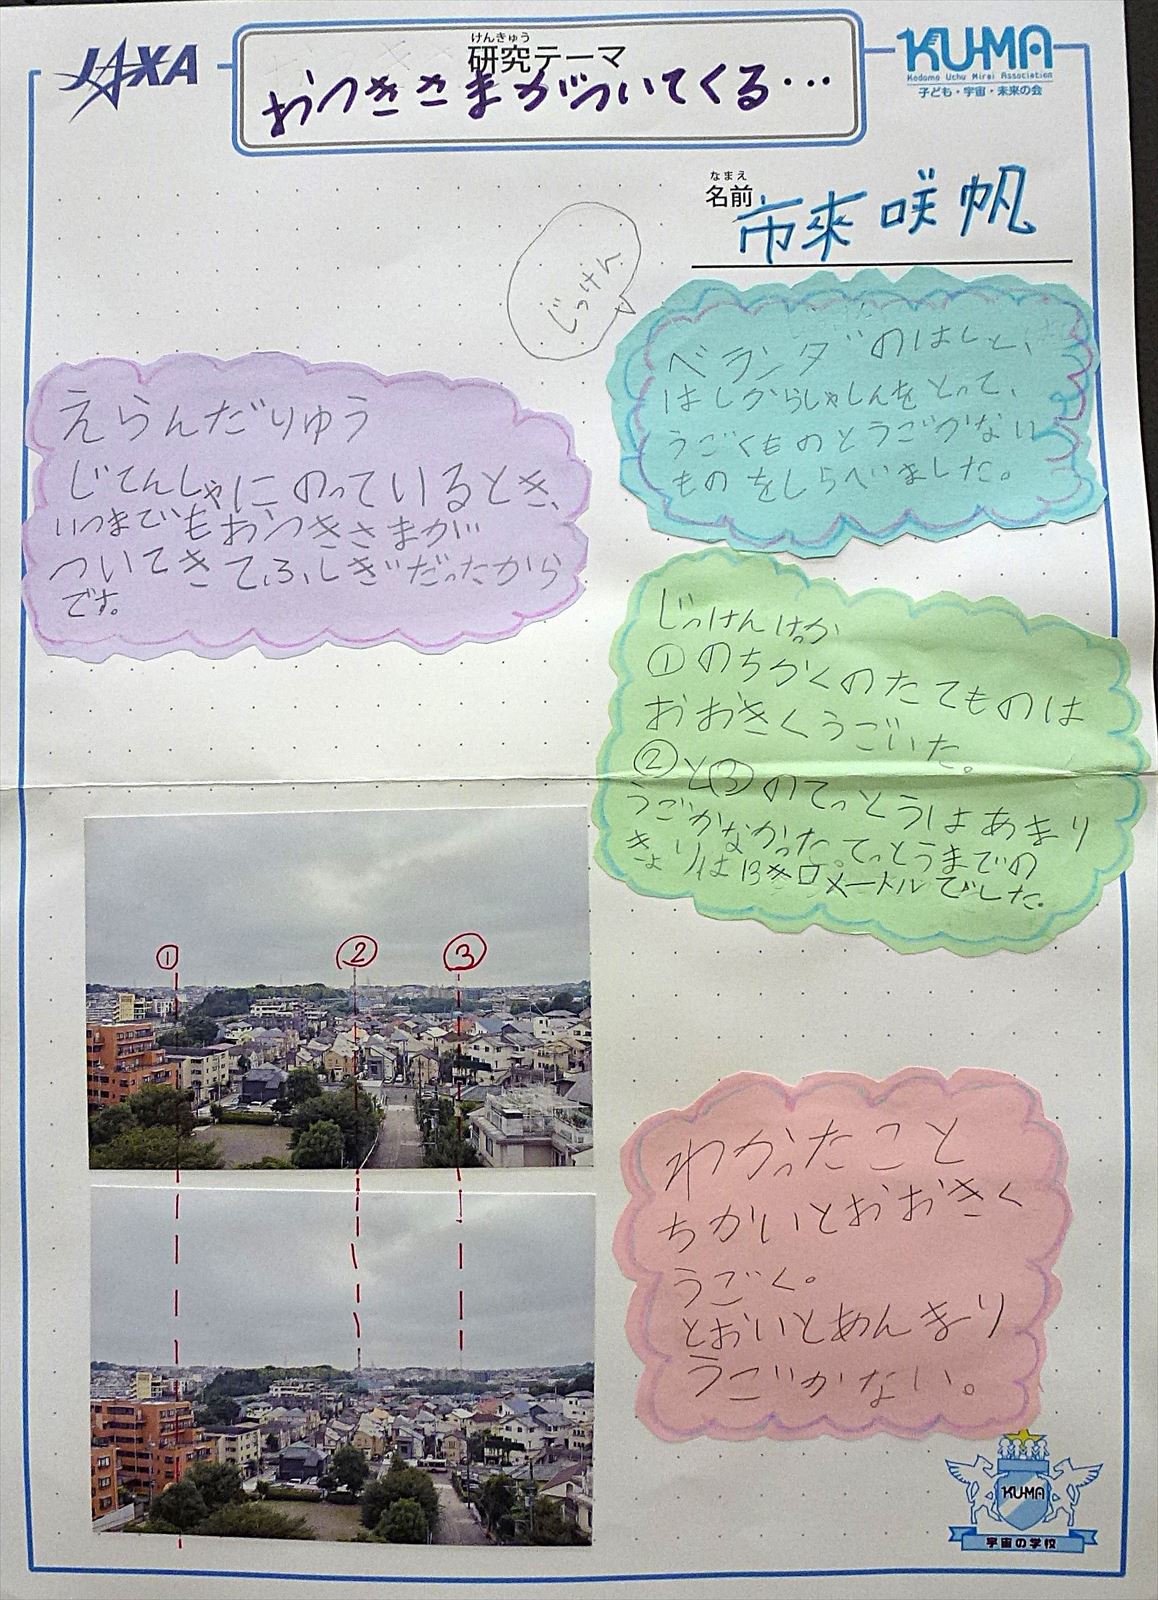 JAXA
けんきゅう
研究テーマ
おつきさまがついてくる…
KU-MA
Kodomo Uchu Mirai Association
子ども・宇宙・未来の会
なまえ
名前
市來 咲帆
じっけん
ベランダのはしと、
はしからしゃしんをとって、
うごくものとうごかない
ものをしらべました。
えらんだりゆう
じてんしゃにのっているとき、
いつまでもおつきさまが
ついてきてふしぎだったから
です。
じっけんけっか
①のちかくのたてものは
おおきくうごいた。
②と③のてっとうはあまり
うごかなかった。てっとうまでの
きょりは13キロメートルでした。
① ② ③
わかったこと
ちかいとおおきく
うごく。
とおいとあんまり
うごかない。
KU-MA
宇宙の学校